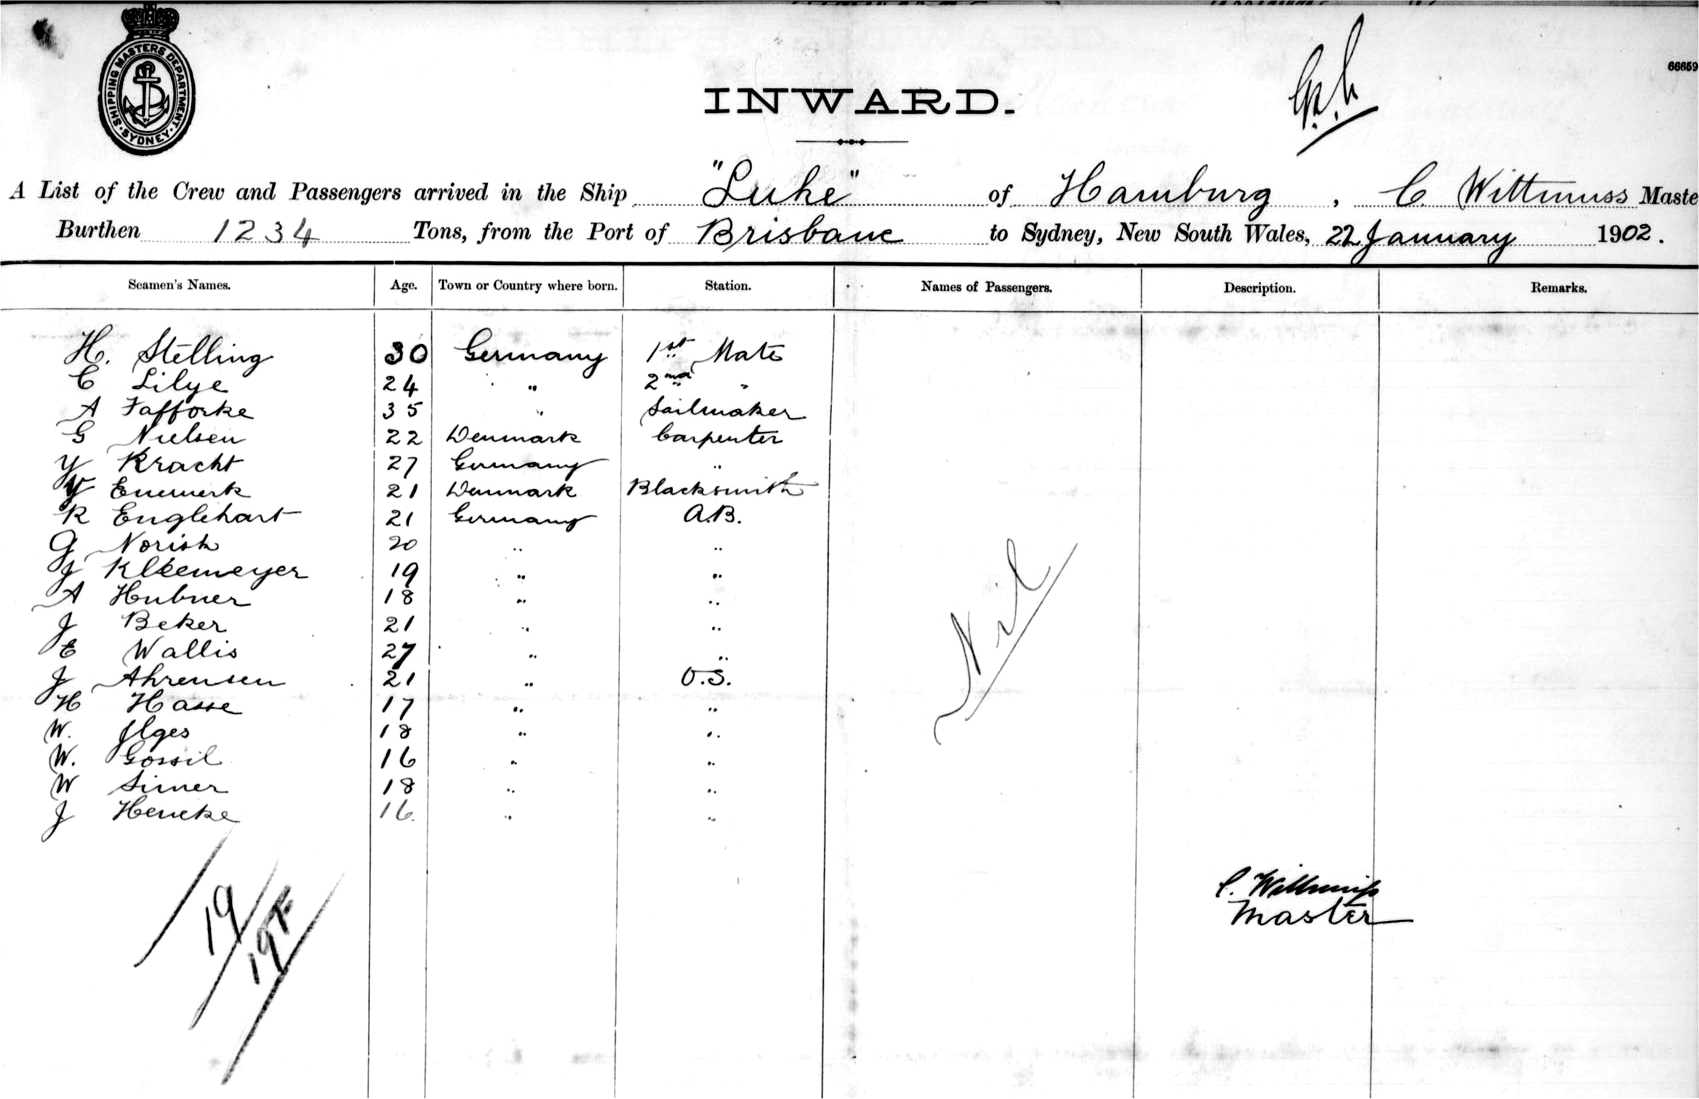 SHIPPING MASTERS DEPARTMENT · SYDNEY ·
66659
INWARD.
A List of the Crew and Passengers arrived in the Ship "Luke" of Hamburg, C Wittmuss Maste
Burthen 1234 Tons, from the Port of Brisbane to Sydney, New South Wales, 22 January 1902.
Seamen's Names. Age. Town or Country where born. Station. Names of Passengers. Description. Remarks.
H. Stelling 30 Germany 1st Mate
C Lilye 24 " 2nd "
A Fafforke 35 " Sailmaker
G Nielsen 22 Denmark Carpenter
Y Kracht 27 Germany "
Y Enewerk 21 Denmark Blacksmith
R Englehart 21 Germany A.B.
G Norish 20 " "
J Kleemeyer 19 " "
A Hubner 18 " "
J Beker 21 " "
E Wallis 27 " "
J Ahrensen 21 " O.S.
H Hasse 17 " "
W. Ilges 18 " "
W. Gossil 16 " "
W Simer 18 " "
J Hencke 16 " "
Nil
C. Wittmuss
Master
19